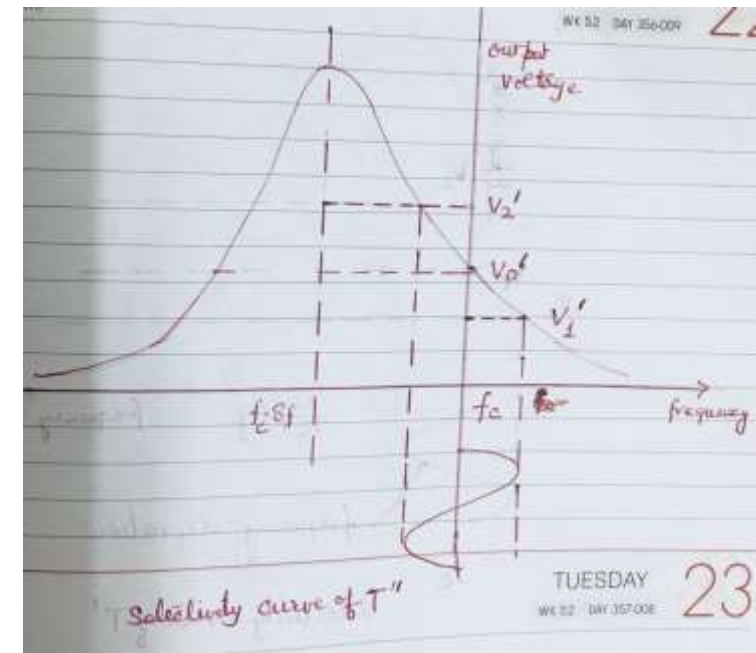 WK 52 DAY 356-009
22
output
voltage
V2'
V0'
V1'
fc-δf
fc
frequency
"Selectivity curve of T"
TUESDAY
23
WK 52 DAY 357-008